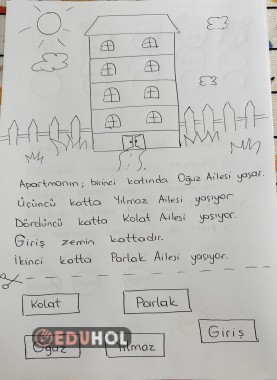 Apartmanın; birinci katında Oğuz Ailesi yaşar.
Üçüncü katta Yılmaz Ailesi yaşıyor
Dördüncü katta Kolat Ailesi yaşıyor.
Giriş zemin kattadır.
İkinci katta Parlak Ailesi yaşıyor.
Kolat
Parlak
Giriş
Oğuz
Yılmaz
EDUHOL